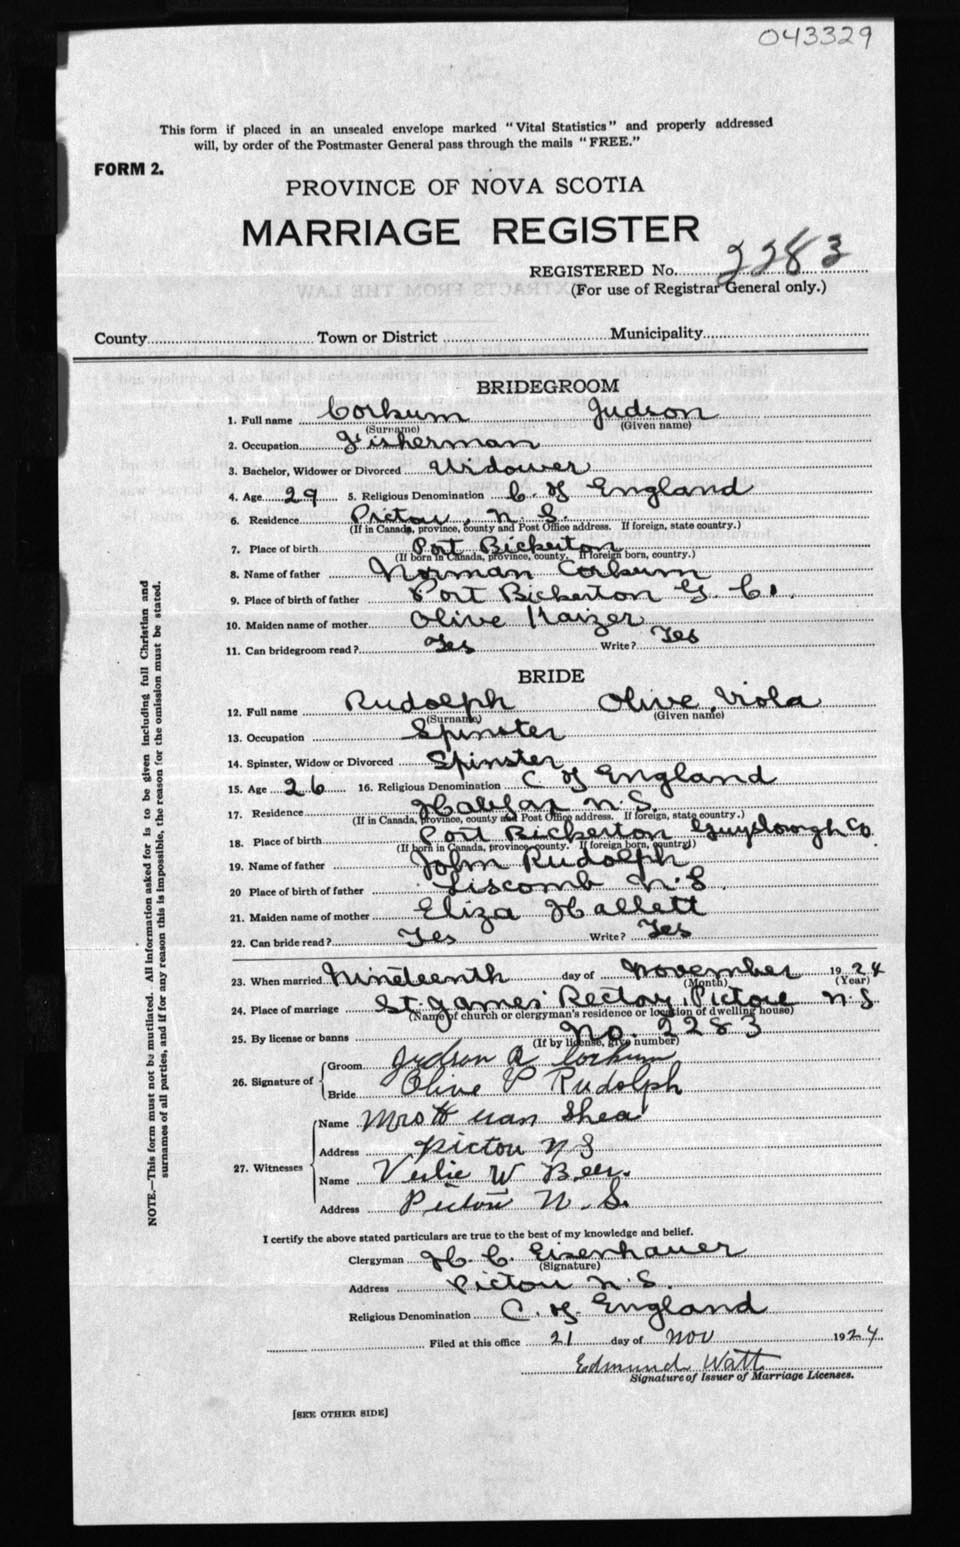 043329
This form if placed in an unsealed envelope marked "Vital Statistics" and properly addressed
will, by order of the Postmaster General pass through the mails "FREE."
FORM 2.
PROVINCE OF NOVA SCOTIA
MARRIAGE REGISTER
REGISTERED No. 2283
(For use of Registrar General only.)
County Town or District Municipality
BRIDEGROOM
1. Full name Corkum Judson
(Surname) (Given name)
2. Occupation Fisherman
3. Bachelor, Widower or Divorced Widower
4. Age 29 5. Religious Denomination C. of England
6. Residence Pictou, N.S.
(If in Canada, province, county and Post Office address. If foreign, state country.)
7. Place of birth Port Bickerton
(If born in Canada, province, county. If foreign born, country.)
8. Name of father Norman Corkum
9. Place of birth of father Port Bickerton G. Co.
10. Maiden name of mother Olive Kaizer
11. Can bridegroom read? Yes Write? Yes
BRIDE
12. Full name Rudolph Olive Viola
(Surname) (Given name)
13. Occupation Spinster
14. Spinster, Widow or Divorced Spinster
15. Age 26 16. Religious Denomination C of England
17. Residence Halifax N.S.
(If in Canada, province, county and Post Office address. If foreign, state country.)
18. Place of birth Port Bickerton Guysborough Co.
(If born in Canada, province, county. If foreign born, country.)
19. Name of father John Rudolph
20 Place of birth of father Liscomb N.S.
21. Maiden name of mother Eliza Hallett
22. Can bride read? Yes Write? Yes
23. When married Nineteenth day of November 1924
(Month) (Year)
24. Place of marriage St. James' Rectory, Pictou N.S
(Name of church or clergyman's residence or location of dwelling house)
25. By license or banns No. 2283
(If by license, give number)
26. Signature of Groom Judson A Corkum
Bride Olive V Rudolph
27. Witnesses Name Mrs Shea
Address Pictou N S
Name W Beer.
Address Pictou N. S.
I certify the above stated particulars are true to the best of my knowledge and belief.
Clergyman H. C. Eisenhauer
(Signature)
Address Pictou N.S.
Religious Denomination C. of England
Filed at this office 21 day of Nov 1924
Edmund Watt
Signature of Issuer of Marriage Licenses.
[SEE OTHER SIDE]
NOTE.—This form must not be mutilated. All information asked for is to be given including full Christian and
surnames of all parties, and if for any reason this is impossible, the reason for the omission must be stated.